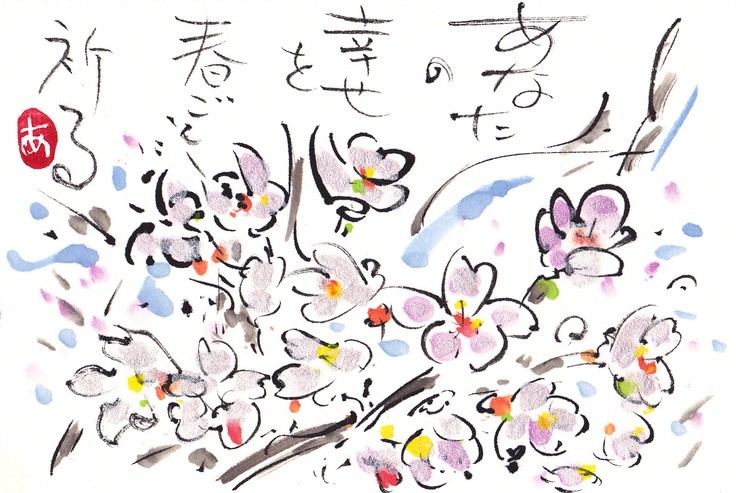 あなたの
幸せを
春ごとに
祈る
あ